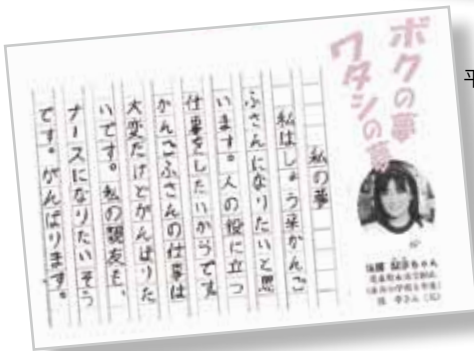 ボクの夢
ワタシの夢
私の夢
私はしょう来かんご
ふさんになりたいと思
います。人の役に立つ
仕事をしたいからです
かんごふさんの仕事は
大変だけどがんばりた
いです。私の親友も、
ナースになりたいそう
です。がんばります。